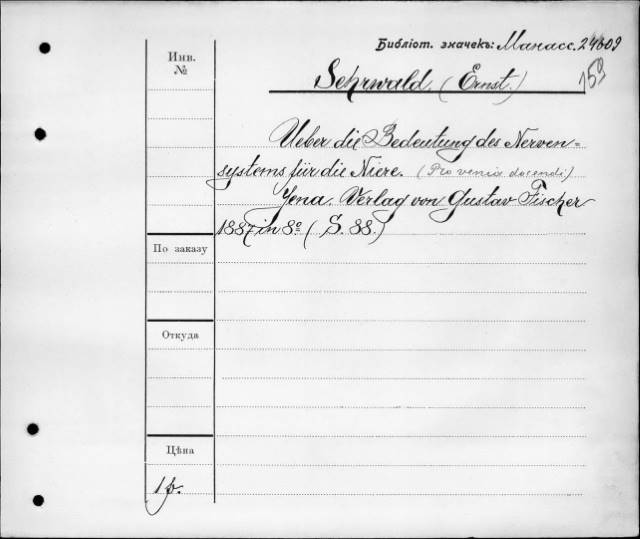 Библіот. значекъ: Манасс. 24609
159
Инв.
№
Sehrwald. (Ernst.)
Ueber die Bedeutung des Nerven-
systems für die Niere. (Pro venia docendi)
Jena. Verlag von Gustav Fischer
1887 in 8º. (S. 88.)
По заказу
Откуда
Цѣна
1 р.